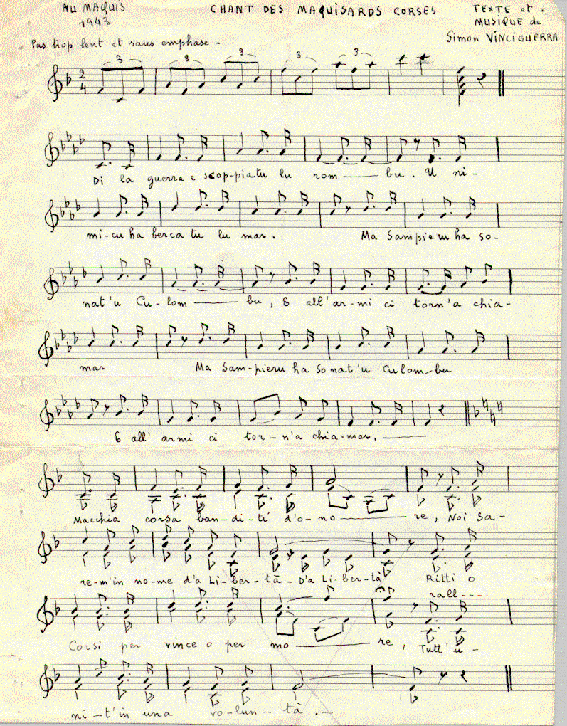 AU MAQUIS CHANT DES MAQUISARDS CORSES TEXTE et
1943 MUSIQUE de
Pas trop lent et sans emphase - Simon VINCIGUERRA
3 3 3 3
2/4
Di la guerra e scop-piatu lu rom — bu. U ni-
mi-cu ha bercatu lu mar. Ma Sampieru ha so-
nat'u Cu-lom — bu, E all'ar-mi ci torn'a chia-
mar Ma Sam-pieru ha sonat'u Culom-bu
E all armi ci tor-n'a chia-mar. —
Macchia corsa ban-di-ti d'o-no — re, Noi sa-
re-min no-me d'a Li-ber-tà - D'a Li-ber-tà Ritti o
rall---
Corsi per vince o per mo — re, Tutt u-
ni-t'in una vo-lun-tà. -